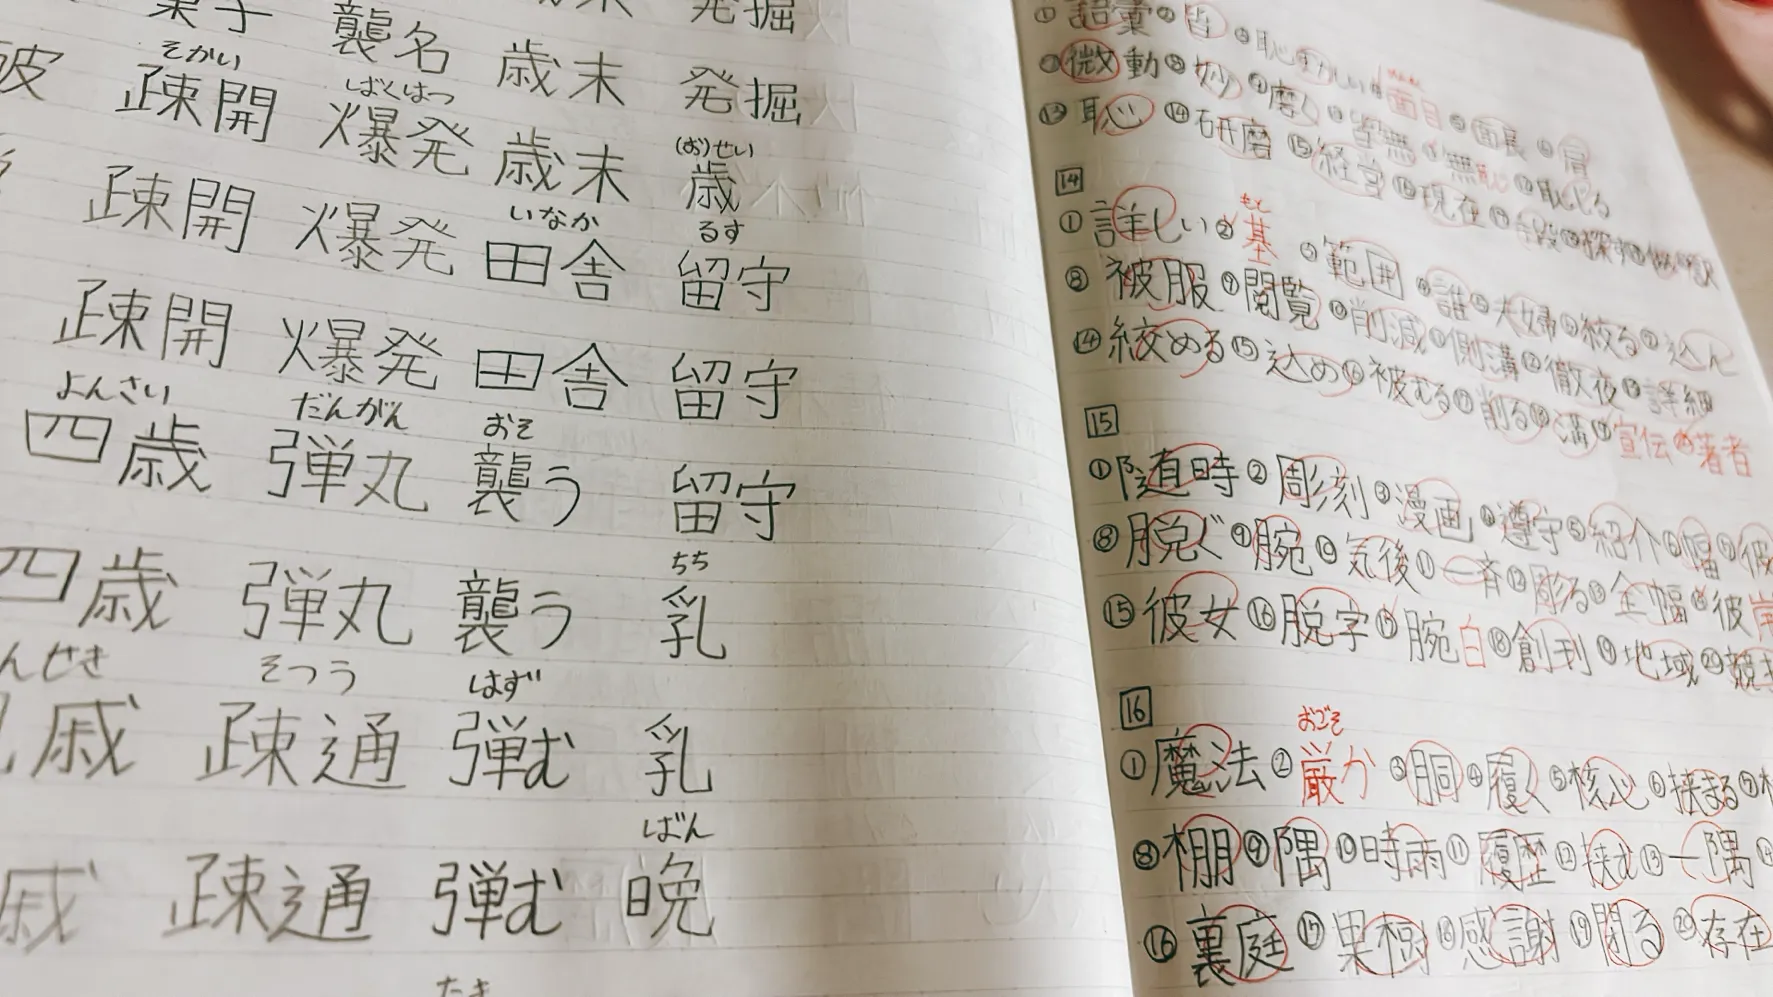 菓子 襲名 歳末 発掘
そかい ばくはつ
疎開 爆発 歳末 発掘
(お)せい
疎開 爆発 歳末 歳
いなか るす
疎開 爆発 田舎 留守
よんさい だんがん おそ
四歳 弾丸 襲う 留守
ちち
四歳 弾丸 襲う 乳
んせき そつう はず
戚 疎通 弾む 乳
ばん
戚 疎通 弾む 晩
たき
①語彙 ②皆 ③恥ずかしい 面目 面長 肩
微動 妙 磨く 皆無 無恥 恥じる
⑬恥 ⑭研磨 ⑮経営 現在 探す
14
もと
①詳しい ②基 ③範囲 ④誰 ⑤夫婦 ⑥絞る ⑦込ん
⑧被服 ⑨閲覧 ⑩削減 ⑪側溝 ⑫徹夜 ⑬詳細
⑭絞める ⑮込め ⑯被むる ⑰削る ⑱溝 ⑲宣伝 ⑳著者
15
①随時 ②彫刻 ③漫画 ④遵守 ⑤紹介 ⑥幅 ⑦彼
⑧脱ぐ ⑨腕 ⑩気後 ⑪一斉 ⑫彫る ⑬全幅 ⑭彼岸
⑮彼女 ⑯脱字 ⑰腕白 ⑱創刊 ⑲地域 ⑳競
16
おごそ
①魔法 ②厳か ③胴 ④履く ⑤核心 ⑥挟まる ⑦
⑧棚 ⑨隅 ⑩時雨 ⑪履歴 ⑫挟む ⑬一隅 ⑭
⑯裏庭 ⑰果樹 ⑱感謝 ⑲閉る ⑳存在